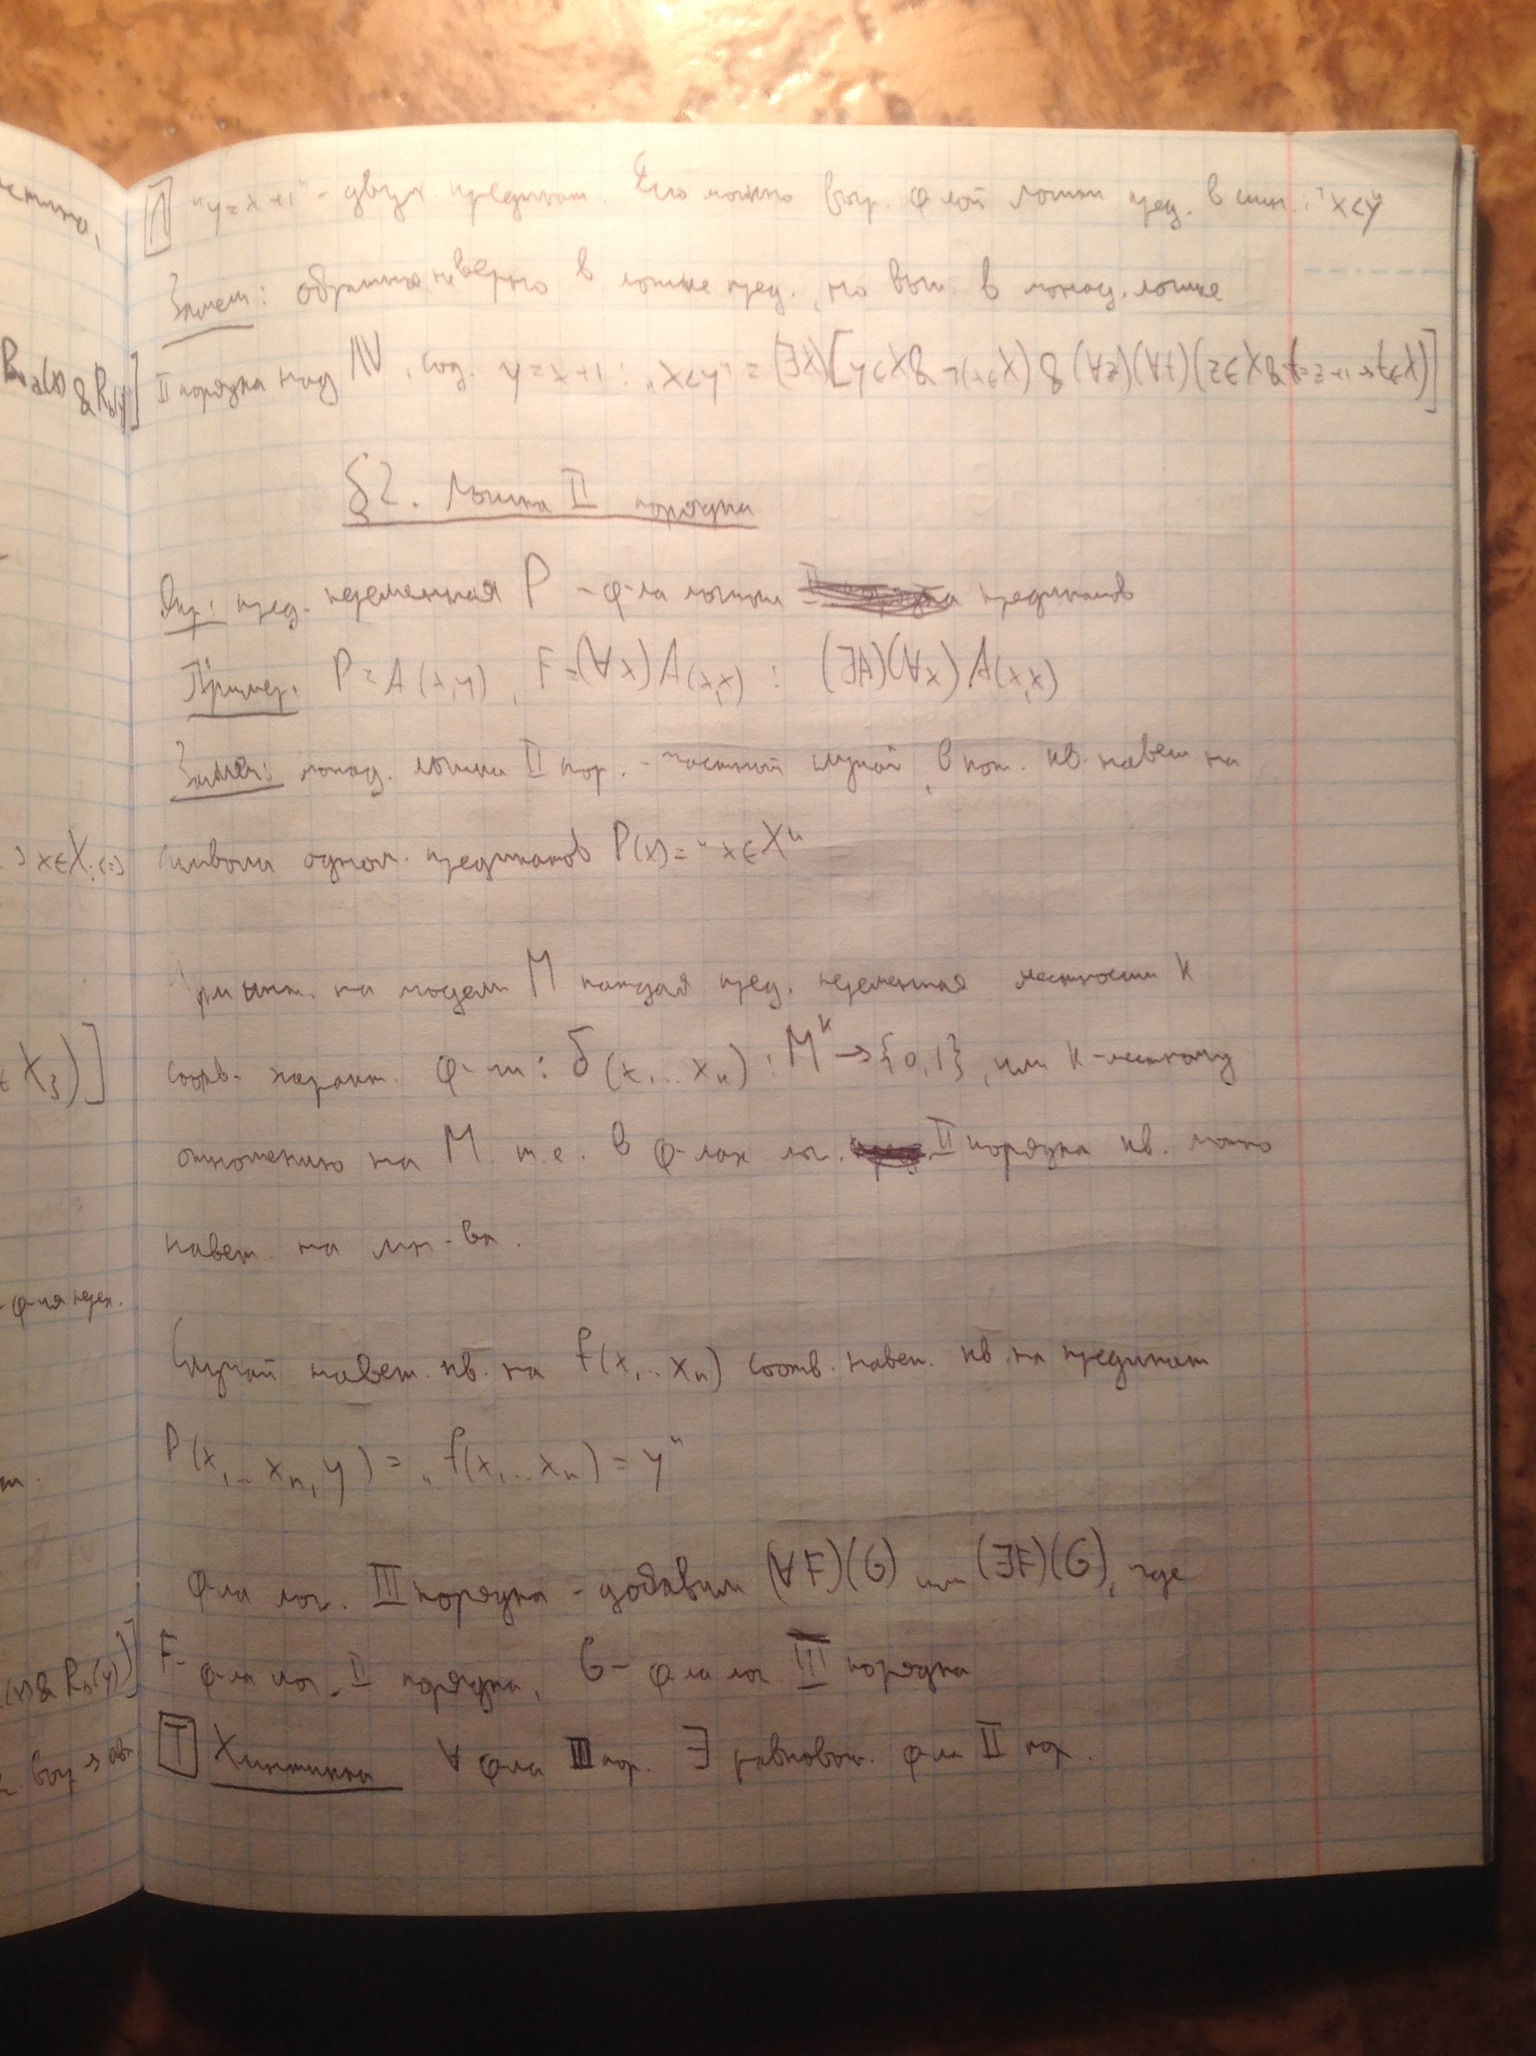 Л "y=x+1" - двухм. предикат. Его можно выр. ф-лой логики пред. в сиг.: "x<y"
Замеч: обратное неверно в логике пред., но вып. в монад. логике
II порядка над ℕ, сод. y=x+1: "x<y" = (∃X)[y∈X & ¬(x∈X) & (∀z)(∀t)(z∈X & t=z+1→t∈X)]
§2. Логика II порядка
Опр: пред. переменная P - ф-ла логики предикатов
Пример: P=A(x,y), F=(∀x)A(x,x): (∃A)(∀x)A(x,x)
Замеч: монад. логика II пор. - частный случай, в кот. кв. навеш на
символы одном. предикатов P(x)="x∈X"
При инт. на модели M каждая пред. переменная местности k
соотв. характ. ф-ии: δ(x₁...xₙ): Mᵏ→{0,1}, или k-местному
отношению на M т.е. в ф-лах лог. II порядка кв. можно
навеш. на мн-ва.
Случай навеш. кв. на f(x₁...xₙ) соотв. навеш. кв. на предикат
P(x₁...xₙ,y) = "f(x₁...xₙ)=y"
Ф-ла лог. III порядка - добавим (∀F)(G) или (∃F)(G), где
F- ф-ла лог. II порядка, G- ф-ла лог III порядка
Т Хинтикки ∀ ф-лы III пор. ∃ равновып. ф-ла II пор.
стина,
Rₐ(x)&R_b(y)]
x∈X:(=)
∈X₃)]
(x)&R_b(y)]